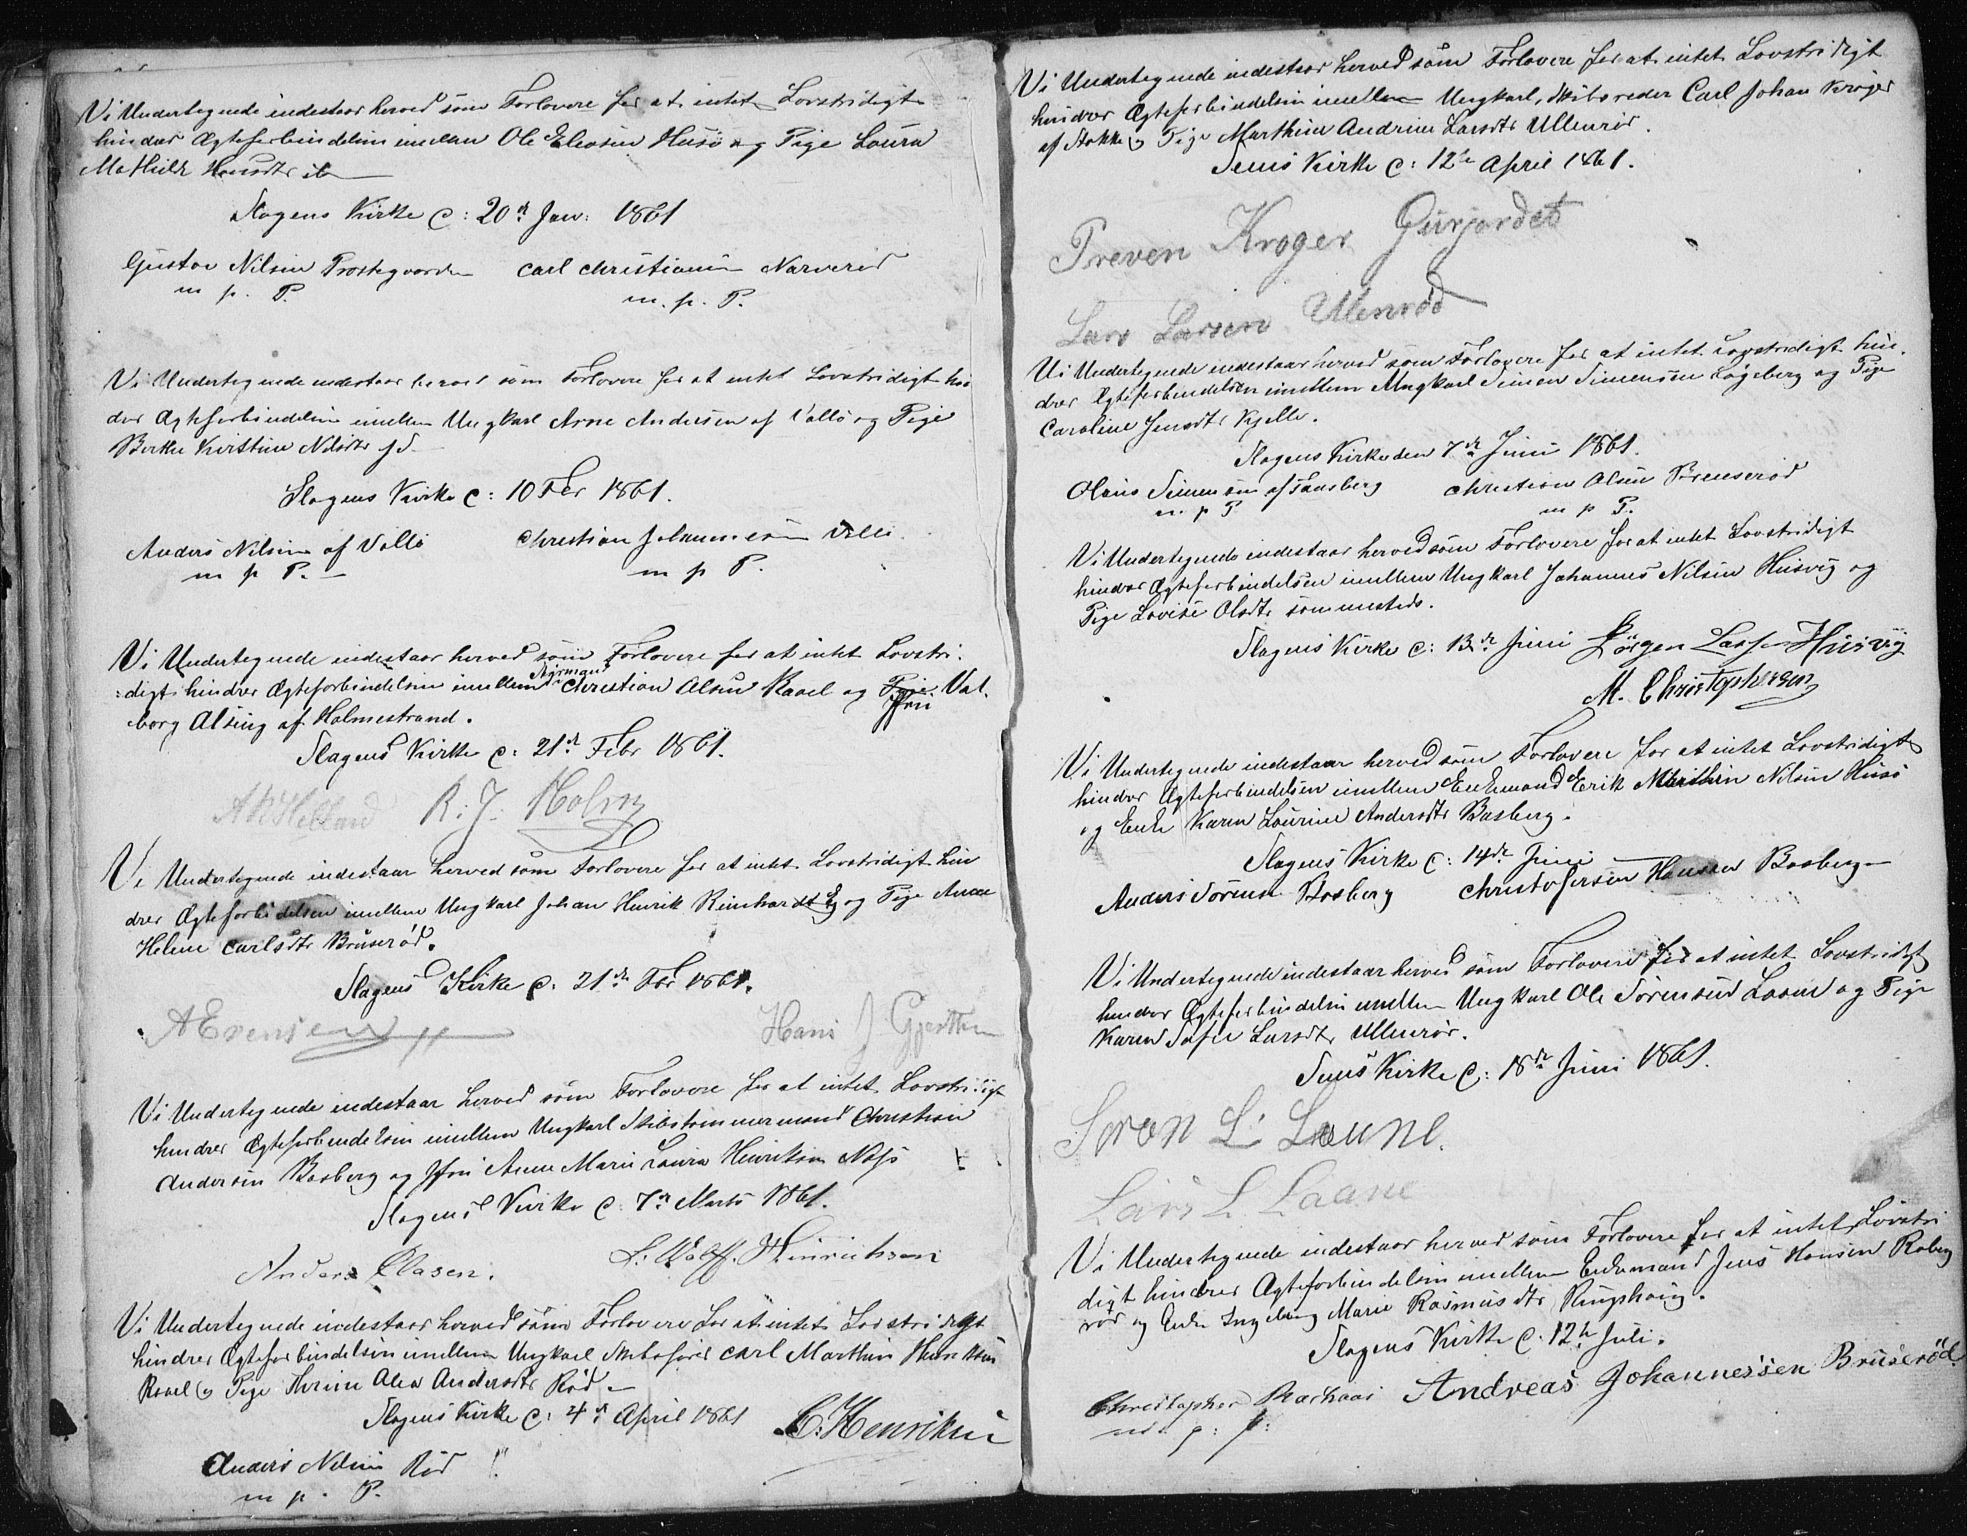 Vi Undertegnede indestaar herved som Forlovere for at intet Lovstridigt
hindrer Ægteforbindelsen imellem Ole Eliasen Husø og Pige Laura
Mathilde Hansdtr
Slagens Kirke d: 20de Jan: 1861
Gustav Nilsen Prestegaarden Carl Christiansen Narverød
m. p. P. m. p. P.
Vi Undertegnede indestaar herved som Forlovere for at intet Lovstridigt hin
drer Ægteforbindelsen imellem Ungkarl Arne Andersen af Vallø og Pige
Berthe Kirstine Nilsdtr
Slagens Kirke d: 10 Feb 1861.
Anders Nilsen af Vallø Christian Johannesen Vallø
m p P. m p P.
Vi Undertegnede indestaar herved som Forlovere for at intet Lovstri-
digt hindrer Ægteforbindelsen imellem Styrmand Christian Olsen Ravel og Pige Jfru Val-
borg Alsing af Holmestrand.
Slagens Kirke d: 21de Febr 1861.
R. J. Holm
Vi Undertegnede indestaar herved som Forlovere for at intet Lovstridigt hin
drer Ægteforbindelsen imellem Ungkarl Johan Henrik Reinhardt Eg og Pige Anne
Helene Carlsdtr Bruserød.
Slagens Kirke d. 21de Febr 1861.
A Evensen Hans J Gjertsen
Vi Undertegnede indestaar herved som Forlovere for at intet Lovstridigt
hindrer Ægteforbindelsen imellem Ungkarl Skibstømmermand Christian
Andersen Basberg og Jfru Anne Marie Laura Henriksen Næs
Slagens Kirke d. 7de Marts 1861.
Anders Olasen. L. Wolff. Hinrichsen
Vi Undertegnede indestaar herved som Forlovere for at intet Lovstridigt
hindrer Ægteforbindelsen imellem Ungkarl Skibsfører Carl Marthin Henriksen
Ravel og Pige Therine Alea Andersdtr Rød
Slagens Kirke d: 4de April 1861 C. Henriksen
Anders Nilsen Rød
m p. P.
Vi Undertegnede indestaar herved som Forlovere for at intet Lovstridigt
hindrer Ægteforbindelsen imellem Ungkarl, Skibsreder Carl Johan Krøger
af Stokke og Pige Marthine Andrine Larsdtr Ullenrød.
Sems Kirke d: 12te April 1861.
Preven Kroger Gurjordet
Lars Larsen Ulenrød
Vi Undertegnede indestaar herved som Forlovere for at intet Lovstridigt hin-
drer Ægteforbindelsen imellem Ungkarl Simen Simensen Løgeberg og Pige
Caroline Jensdtr Kjelle.
Slagens Kirke den 7de Juni 1861.
Olaus Simensen af Tønsberg Christian Olsen Brenserød
m. p P m p P.
Vi Undertegnede indestaar herved som Forlovere for at intet Lovstridigt
hindrer Ægteforbindelsen imellem Ungkarl Johannes Nilsen Husvig og
Pige Lovise Olsdtr sammesteds.
Slagens Kirke d: 13de Juni Jörgen Larsen Husvig
M. Christophersen
Vi Undertegnede indestaar herved som Forlovere for at intet Lovstridigt
hindrer Ægteforbindelsen imellem Enkemand Erik Mathin Nilsen Husø
og Enke Karen Laurine Andersdtr Basberg.
Slagens Kirke d: 14de Juni
Anders Sørensen Basberg Christofersen Hansen Basberg
Vi Undertegnede indestaar herved som Forlovere for at intet Lovstridigt
hindrer Ægteforbindelsen imellem Ungkarl Ole Sørensen Laane og Pige
Karen Sofie Larsdtr Ullenrød.
Sems Kirke d: 18de Juni 1861.
Soren L. Laune.
Lars L Laane
Vi Undertegnede indestaar herved som Forlovere for at intet Lovstri
digt hindrer Ægteforbindelsen imellem Enkemand Jens Hansen Roberg
rød og Enke Ingeborg Marie Rasmusdtr Ringshaug.
Slagens Kirke d. 12te Juli.
Christopher Barkaas Andreas Johannessen Bruserød
m. p. P.